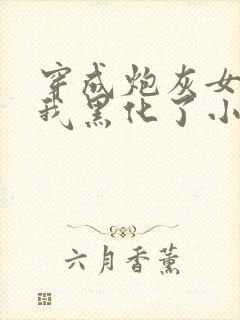 穿成炮灰女
我黑化了小
六月香薰